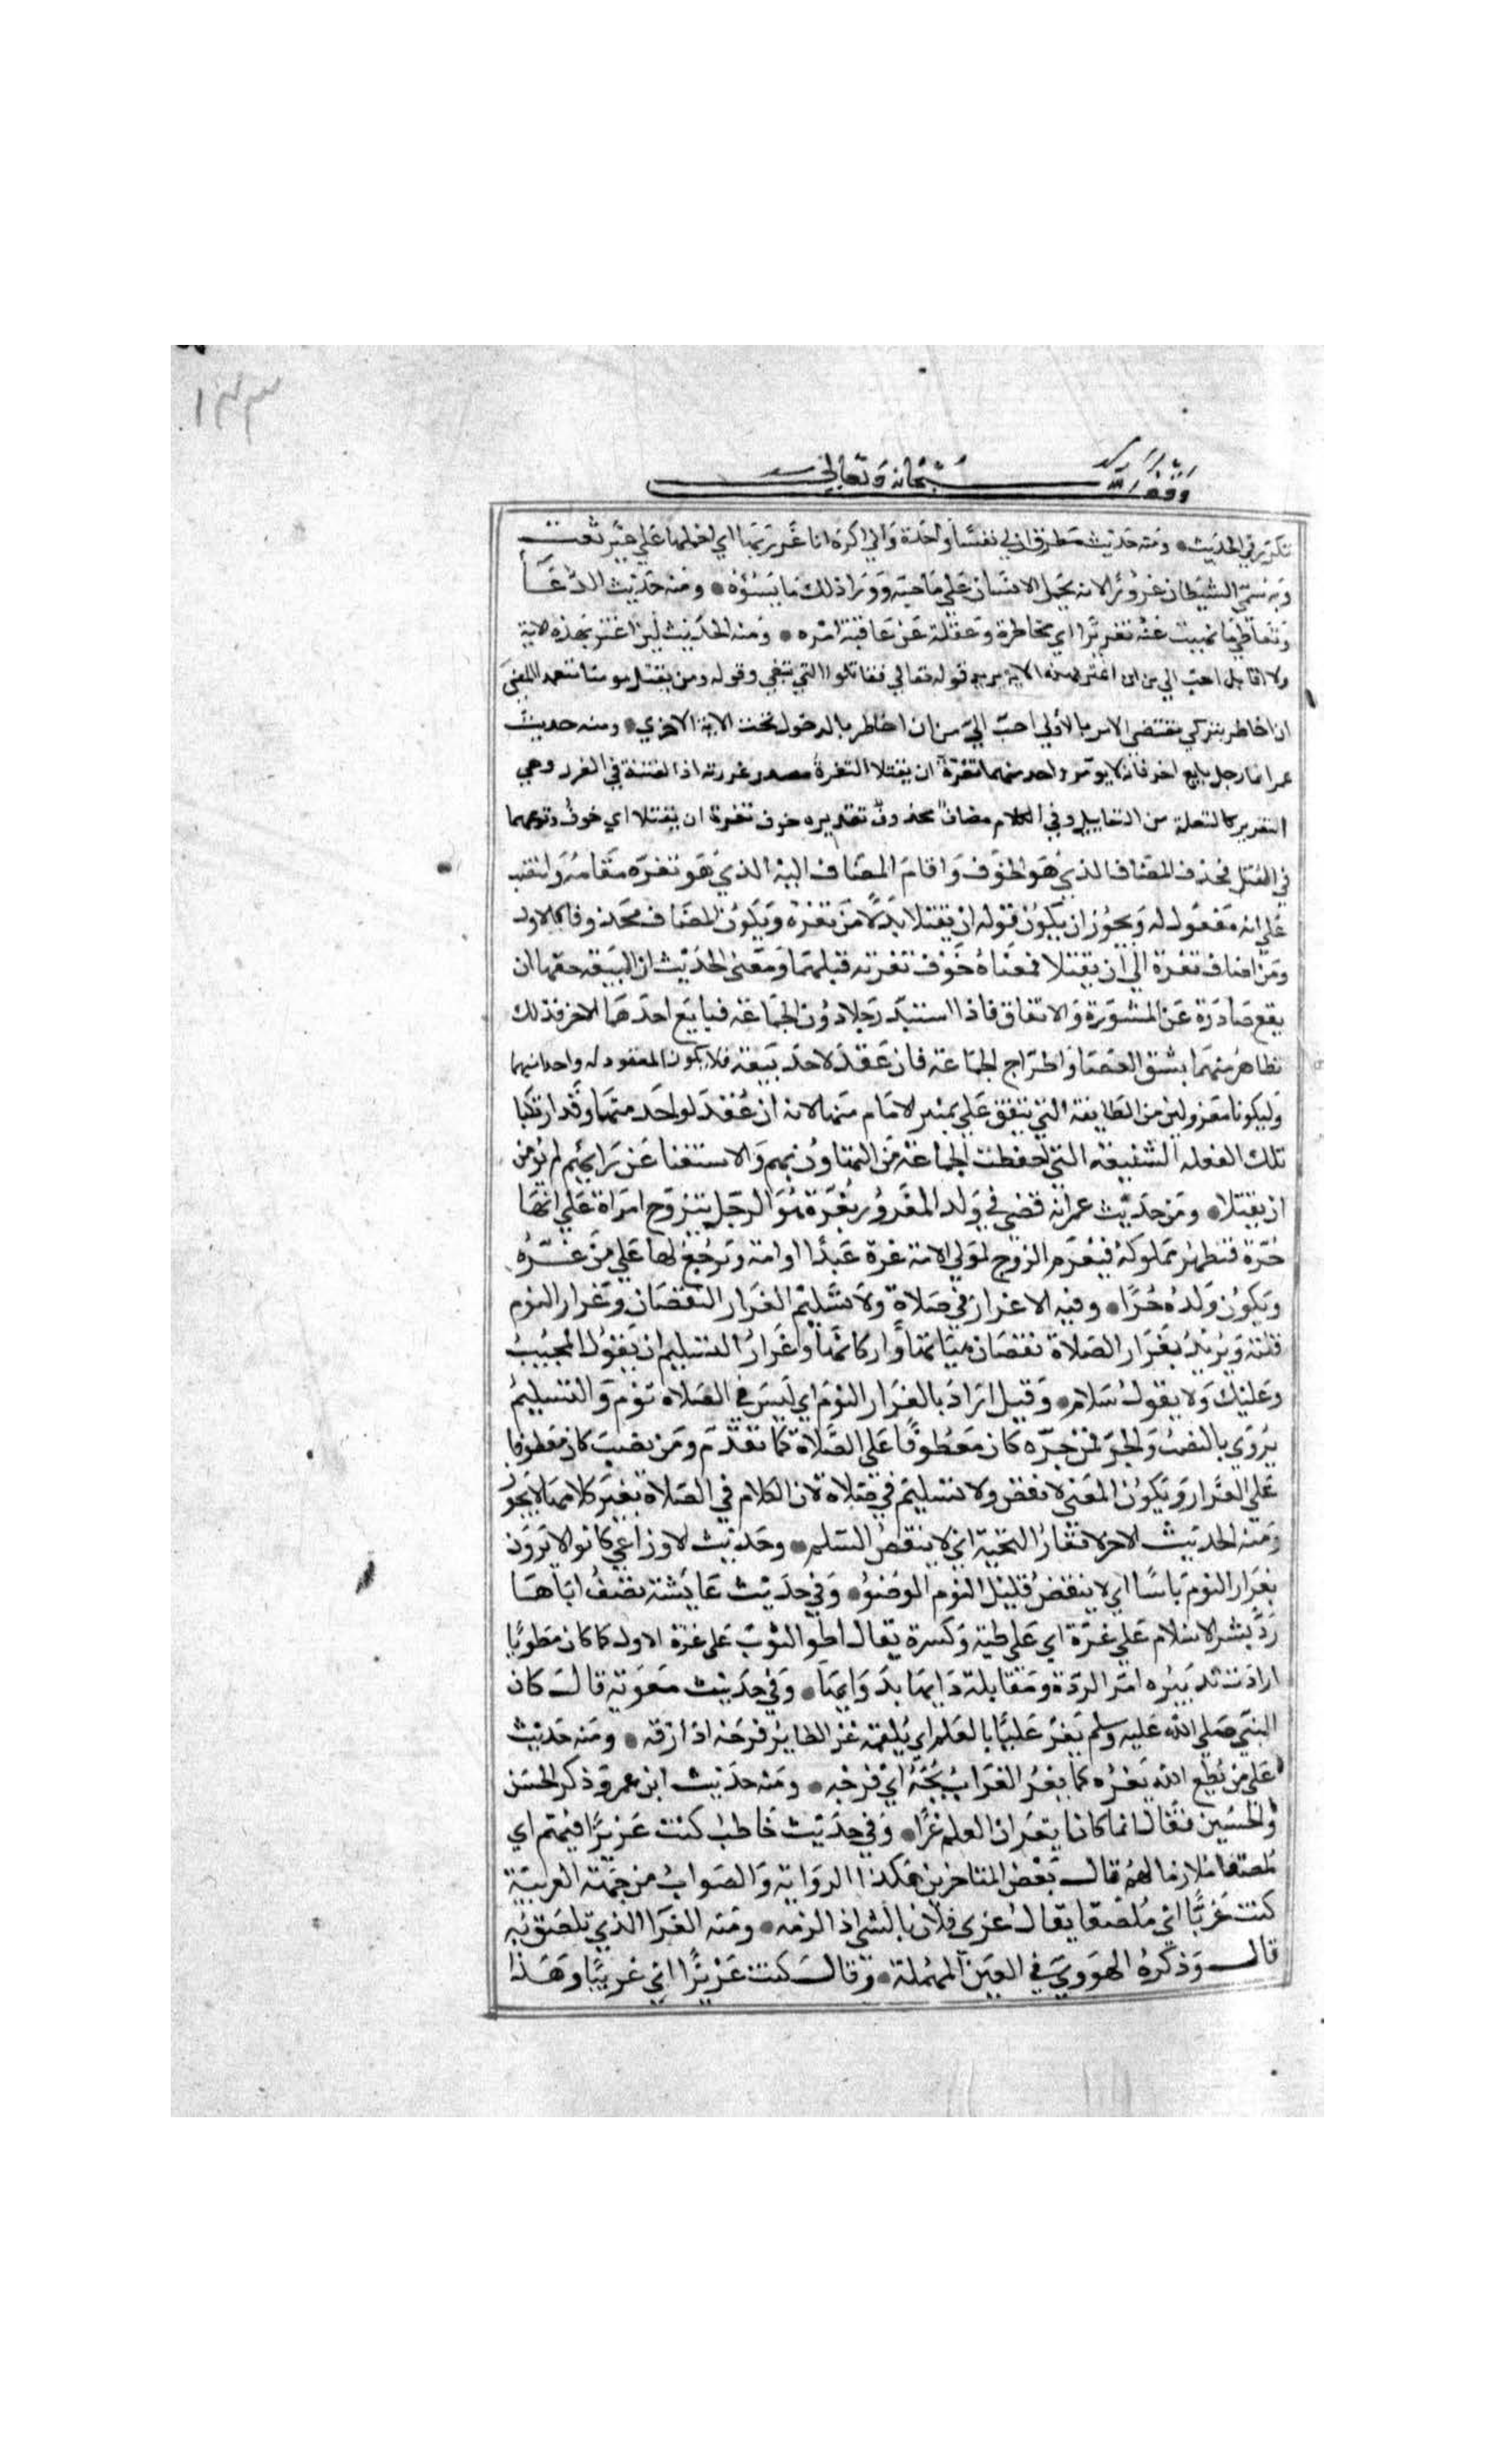 وقف لله سبحانه وتعالى
تكرير في الحديث ومنه حديث مطرف ان لي نفسا واحدة واني اكره ان اغرر بها اي احملها علي غير ثقة
وبه سمي الشيطان غرورا لانه يحمل الانسان علي محابه وورا ذلك ما يسؤه ومنه حديث الدعا
وتعاطي ما نهيت عنه تغريرا اي مخاطرة وغفلة عن عاقبة امره ومنه الحديث لين اغتر بهذه الاية
ولا اقاتل احب الي من ان اغتر بهذه الاية يريد قوله تعالي فقاتلوا التي تبغي وقوله ومن يقتل مومنا متعمدا المعني
ان اخاطر بتركي مقتضي الامر بالأولي احبّ اليّ من ان اخاطر بالدخول تحت الاية الاخري ومنه حديث
عمر ايما رجل بايع اخر فانه لا يومر واحد منهما تغرّة ان يقتلا التغرة مصدر غررته اذا القيته في الغرر وهي
التغرير كالتعلة من التعليل وفي الكلام مضافٌ محذوفٌ تقديره خوف تغرة ان يقتلا اي خوف وقوعهما
في القتل فحذف المضاف الذي هو الخوف واقام المضاف اليه الذي هو تغرّه مقامه وانتصب
علي انه مفعول له ويجوز ان يكون قوله ان يقتلا بدلا من تغرة ويكون المضاف محذوفا كالاول
ومن اضاف تغرة الي ان يقتلا فمعناه خوف تغرته قتلهما ومعنى الحديث ان البيعه حقها ان
يقع صادرة عن المشورة والاتفاق فاذا استبدّ رجلا دون الجماعة فبايع احدهما الاخر فذلك
تظاهر منهما بشق العصا واطراح الجماعة فان عقد لاحد بيعة فلا يكون المعقود له واحدا منهما
وليكونا معزولين من الطايفة التي تتفق علي تمييز الامام منها لانه ان عُقد لواحد منهما وقد ارتكبا
تلك الفعله الشنيعه التي احفظت الجماعة من التهاون بهم والاستغنا عن رايهم لم يُومن
ان يقتلا ومن حديث عمر انه قضي في ولد المغرور بغرّة هو الرجل يتزوج امراة علي انها
حُرّة فتظهر مملوكة فيغرم الزوج لمولي الامة غرة عبدًا او امة ويرجع بها علي من غرّه
ويكون ولده حُرًا وفيه لا غرار في صلاة ولا تسليم الغرار النقصان وغرار النوم
قلته ويريد بغرار الصلاة نقصان هيئاتها واركانها وغرار التسليم ان يقول المجيب
وعليك ولا يقول سلام وقيل اراد بالغرار النوم اي ليس في الصلاه نوم والتسليم
يروي بالنصب والجر فمن جره كان معطوفًا علي الصلاة كما تقدم ومن نصب كان معطوفا
علي الغرار ويكون المعني لا نقص ولا تسليم في صلاة لان الكلام في الصلاة بغير كلامها لا يجوز
ومنه الحديث الاخر لا تغار التحية اي لا ينقص السلم وحديث الاوزاعي كانوا لا يرون
بغرار النوم باسًا اي لا ينقض قليل النوم الوضؤ وفي حديث عايشة تصف اباها
ردّ نشر الاسلام علي غرّة اي علي طيه وكسره يقال اطو الثوب علي غرة الاول كما كان مطويًا
ارادت تدبيره امر الردة ومقابلة دايها بدوايها وفي حديث معوية قال كان
النبي صلي الله عليه وسلم يغر عليًا بالعلم اي يلقمه غر الطاير فرخه اذا زقه ومنه حديث
علي من يُطع الله يغره كما يغر الغراب بُجّه اي فرخه ومنه حديث ابن عمر وذكر الحسن
والحسين فقال انما كانا يغران العلم غرًا وفي حديث حاطب كنت عزيزًا فيهم اي
ملصقا ملازما لهم قال بعض المتاخرين هكذا الرواية والصواب من جهة العربية
كنت غريًّا اي مُلصقا يقال غري فلان بالشي اذا لزمه ومنه الغرا الذي تلصق به
قال وذكره الهروي في العين المهملة وقال كنت عزيزًا اي غريبا وهذا